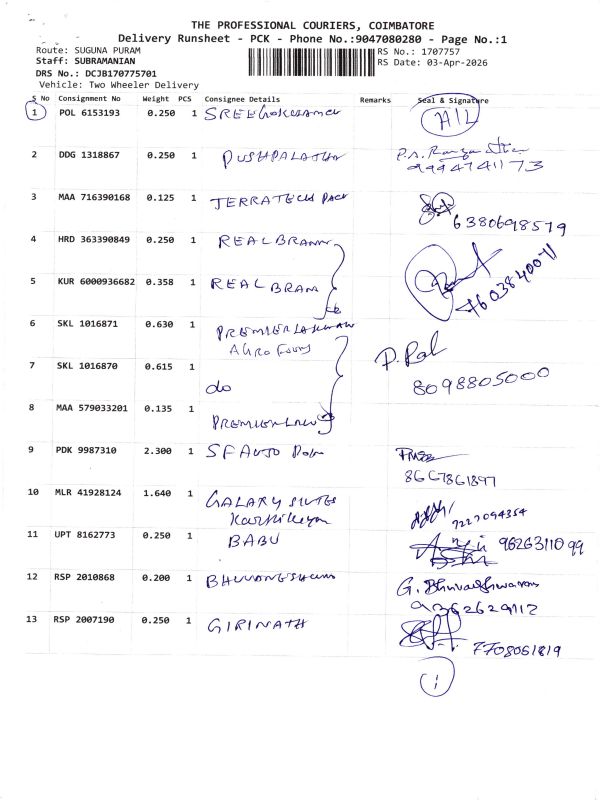 THE PROFESSIONAL COURIERS, COIMBATORE
Delivery Runsheet - PCK - Phone No.:9047080280 - Page No.:1
Route: SUGUNA PURAM RS No.: 1707757
Staff: SUBRAMANIAN RS Date: 03-Apr-2026
DRS No.: DCJB170775701
Vehicle: Two Wheeler Delivery
S No Consignment No Weight PCS Consignee Details Remarks Seal & Signature
1 POL 6153193 0.250 1
2 DDG 1318867 0.250 1 PUSHPALATHA
9994741173
3 MAA 716390168 0.125 1 TERRATECH PACK
6380698579
4 HRD 363390849 0.250 1 REAL BRANN
5 KUR 6000936682 0.358 1 REAL BRAN
7603840071
6 SKL 1016871 0.630 1 PREMIER
AGRO FOODS P. Pal
7 SKL 1016870 0.615 1 do 8098805000
8 MAA 579033201 0.135 1 PREMIER LAW
9 PDK 9987310 2.300 1 SF AUTO
8667861897
10 MLR 41928124 1.640 1 GALAXY SUITES
Karthikeyan 7227094354
11 UPT 8162773 0.250 1 BABU 9626311099
12 RSP 2010868 0.200 1 G. Bhuvaneshwaran
9362629112
13 RSP 2007190 0.250 1 GIRINATH
7708061819